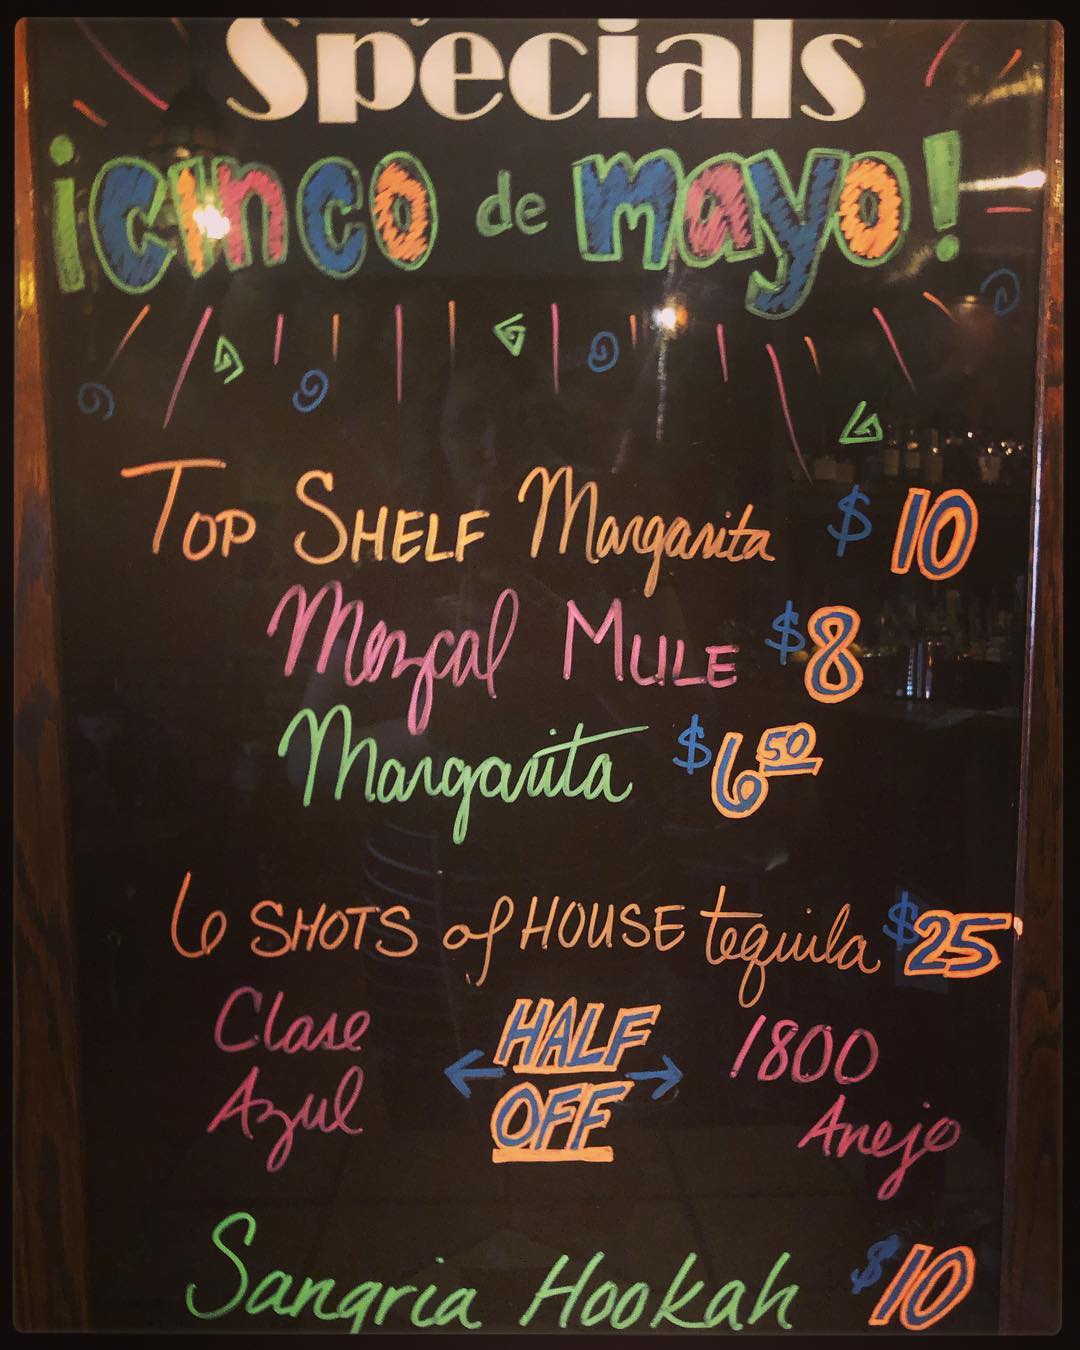 Specials
¡Cinco de mayo!
TOP SHELF Margarita $ 10
Mezcal MULE $8
Margarita $6 50
6 SHOTS of HOUSE tequila $25
Clase Azul ← HALF OFF → 1800 Anejo
Sangria Hookah $10